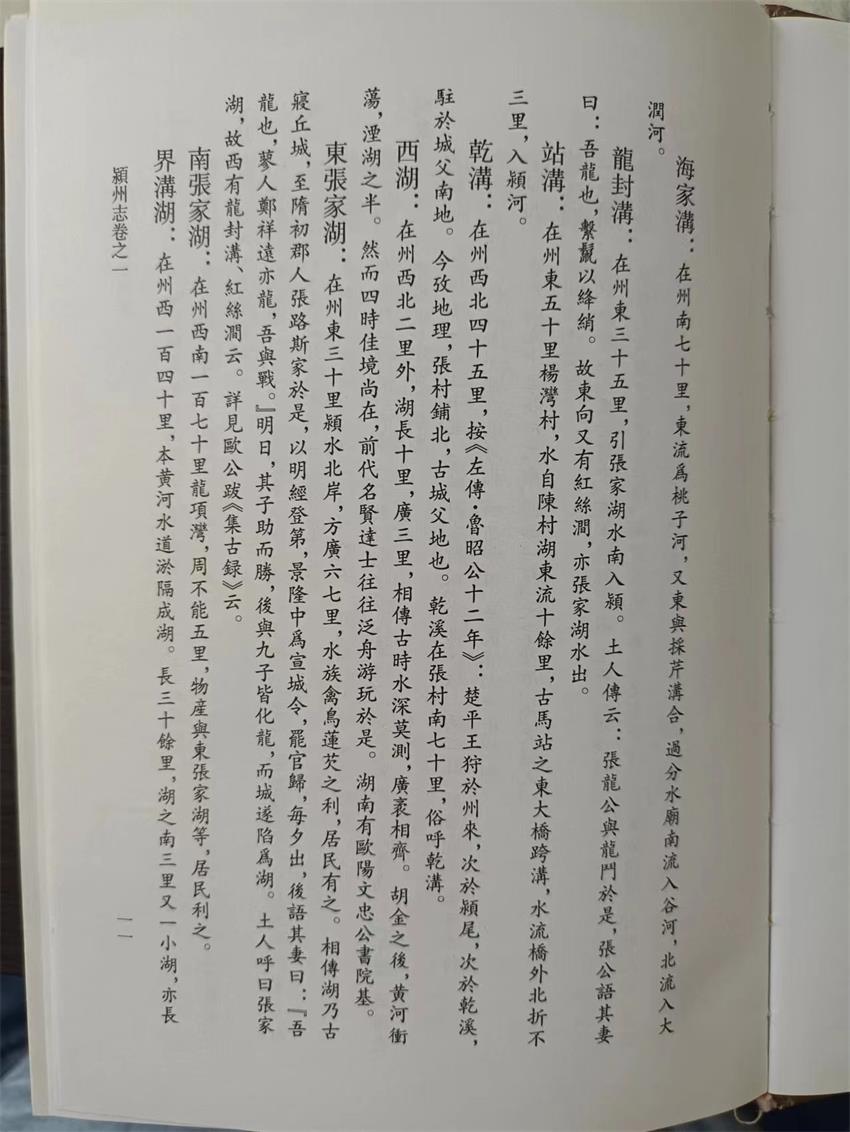 海家溝：在州南七十里，東流爲桃子河，又東與採芹溝合，過分水廟南流入谷河，北流入大
潤河。
龍封溝：在州東三十五里，引張家湖水南入潁。土人傳云：張龍公與龍鬥於是，張公語其妻
曰：吾龍也，繫鬣以絳綃。故東向又有紅絲澗，亦張家湖水出。
站溝：在州東五十里楊灣村，水自陳村湖東流十餘里，古馬站之東大橋跨溝，水流橋外北折不
三里，入潁河。
乾溝：在州西北四十五里，按《左傳·魯昭公十二年》：楚平王狩於州來，次於潁尾，次於乾溪，
駐於城父南地。今攷地理，張村鋪北，古城父地也。乾溪在張村南七十里，俗呼乾溝。
西湖：在州西北二里外，湖長十里，廣三里，相傳古時水深莫測，廣袤相齊。胡金之後，黄河衝
蕩，湮湖之半。然而四時佳境尚在，前代名賢達士往往泛舟游玩於是。湖南有歐陽文忠公書院基。
東張家湖：在州東三十里潁水北岸，方廣六七里，水族禽鳥蓮芡之利，居民有之。相傳湖乃古
寢丘城，至隋初郡人張路斯家於是，以明經登第，景隆中爲宣城令，罷官歸，每夕出，後語其妻曰：『吾
龍也，蓼人鄭祥遠亦龍，吾與戰。』明日，其子助而勝，後與九子皆化龍，而城遂陷爲湖。土人呼曰張家
湖，故西有龍封溝、紅絲澗云。詳見歐公跋《集古録》云。
南張家湖：在州西南一百七十里龍項灣，周不能五里，物産與東張家湖等，居民利之。
界溝湖：在州西一百四十里，本黄河水道淤隔成湖。長三十餘里，湖之南三里又一小湖，亦長
潁州志卷之一
一一